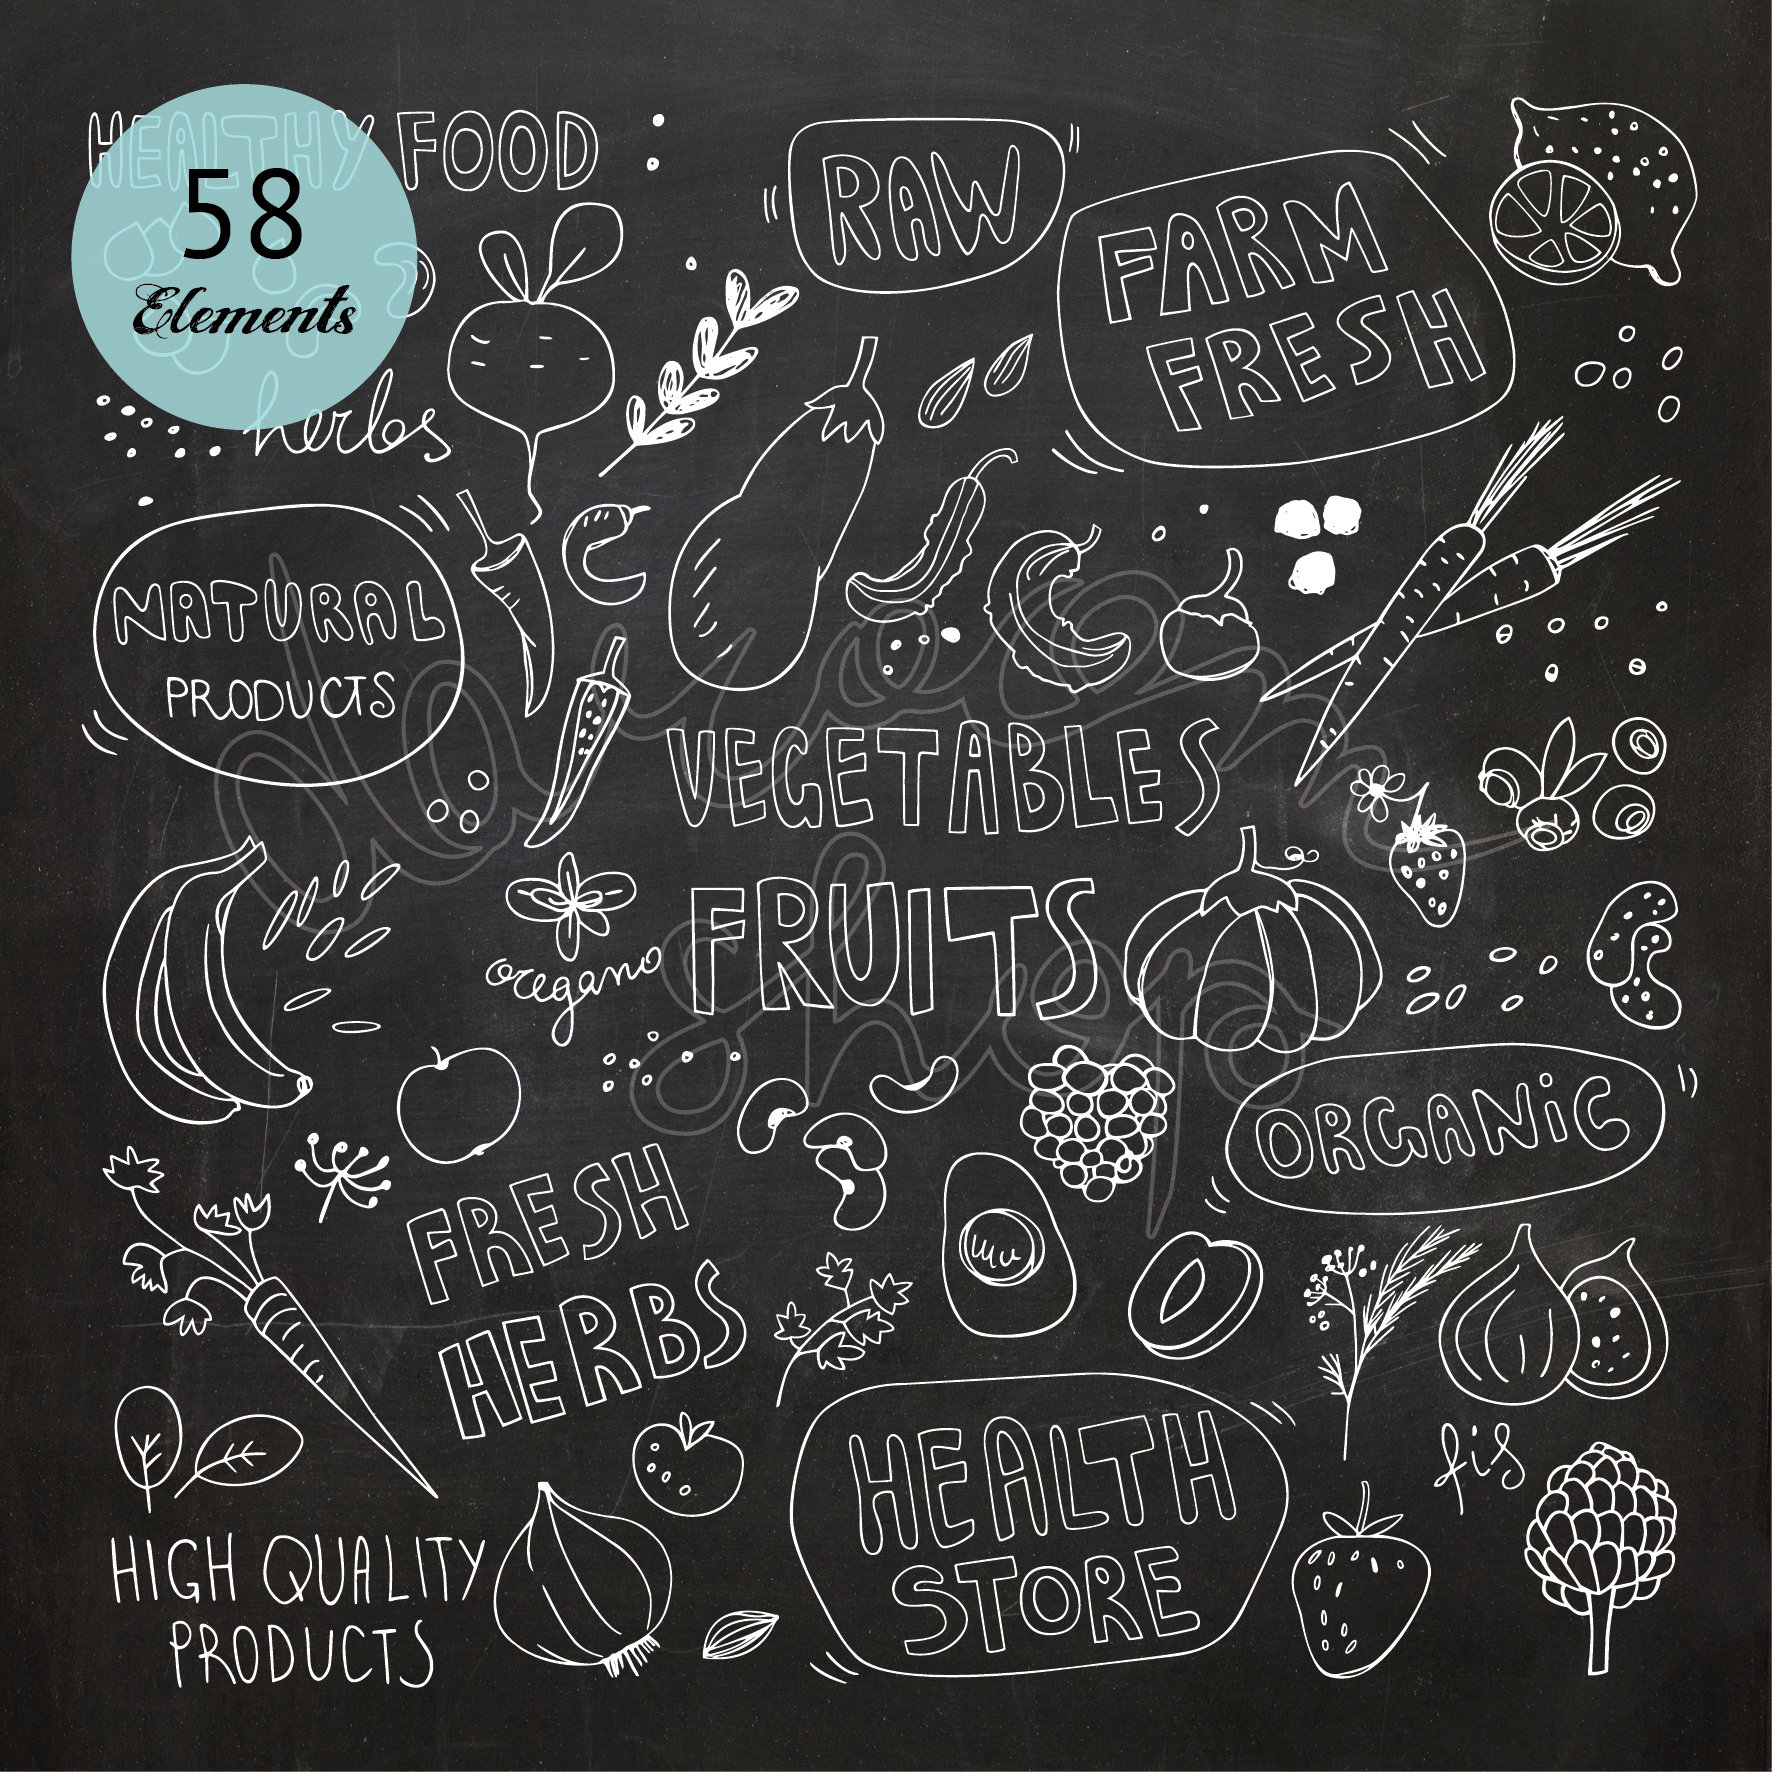 HEALTHY FOOD
58
Elements
herbs
RAW
FARM
FRESH
NATURAL
PRODUCTS
VEGETABLES
FRUITS
oregano
ORGANiC
FRESH
HERBS
fis
HEALTH
STORE
HIGH QUALITY
PRODUCTS